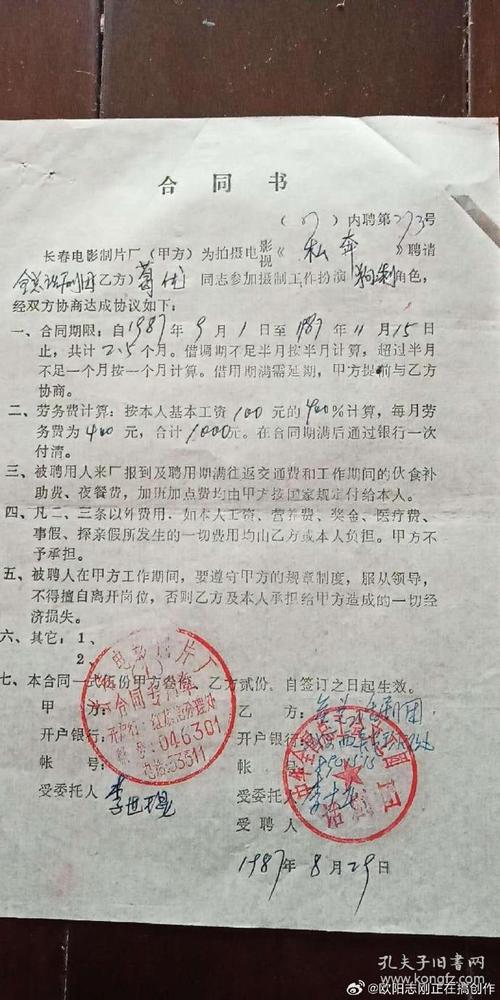 合同书
(87)内聘第273号
长春电影制片厂(甲方)为拍摄电影视《私奔》聘请
全总话剧团乙方)葛优同志参加摄制工作扮演 角色,
经双方协商达成协议如下:
一、合同期限:自1987年9月1日至1987年11月15日
止,共计2.5个月。借调期不足半月按半月计算,超过半月
不足一个月按一个月计算。借用期满需延期,甲方提前与乙方
协商。
二、劳务费计算:按本人基本工资100元的400%计算,每月劳
务费为400元,合计1000元。在合同期满后通过银行一次
付清。
三、被聘用人来厂报到及聘用期满往返交通费和工作期间的伙食补
助费、夜餐费,加班加点费均由甲方按国家规定付给本人。
四、凡二、三条以外费用.如本人工资、营养费、奖金、医疗费、
事假、探亲假所发生的一切费用均由乙方或本人负担。甲方不
予承担。
五、被聘人在甲方工作期间,要遵守甲方的规章制度,服从领导,
不得擅自离开岗位,否则乙方及本人承担给甲方造成的一切经
济损失。
六、其它:1、
2、
七、本合同一式伍份甲方叁份,乙方贰份。自签订之日起生效。
甲方:
乙方:全总话剧团
开户银行:
开户银行:
帐号:
帐号:
受委托人 李世
受委托人
受聘人
1987年8月29日
长春电影制片厂
合同专用章
开户行:红旗街办理处
帐号:046301
电话:53311
中华全国总工会
话剧团
孔夫子旧书网
kongfz.com
@欧阳志刚正在搞创作